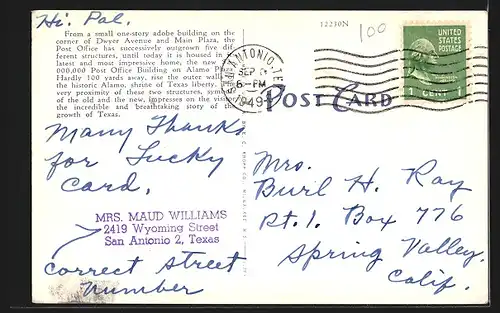 Hi Pal.
From a small one-story adobe building on the
corner of Dwyer Avenue and Main Plaza, the
Post Office has successively outgrown five dif-
ferent structures, until today it is housed in
latest and most impressive home, the new
000,000 Post Office Building on Alamo Pla
Hardly 100 yards away, rise the outer wall
the historic Alamo, shrine of Texas liberty.
very proximity of these two structures, sym
of the old and the new, impresses on the visi
the incredible and breathtaking story of the
growth of Texas.
12230N
100
SAN ANTONIO, TEX
SEP
6-PM
1949
UNITED
STATES
POSTAGE
1 CENT 1
POST CARD
Many Thanks
for Lucky
Card.
MRS. MAUD WILLIAMS
2419 Wyoming Street
San Antonio 2, Texas
Correct street
number
Mrs.
Burl H. Ray
Rt. 1. Box 776
Spring Valley.
Calif.